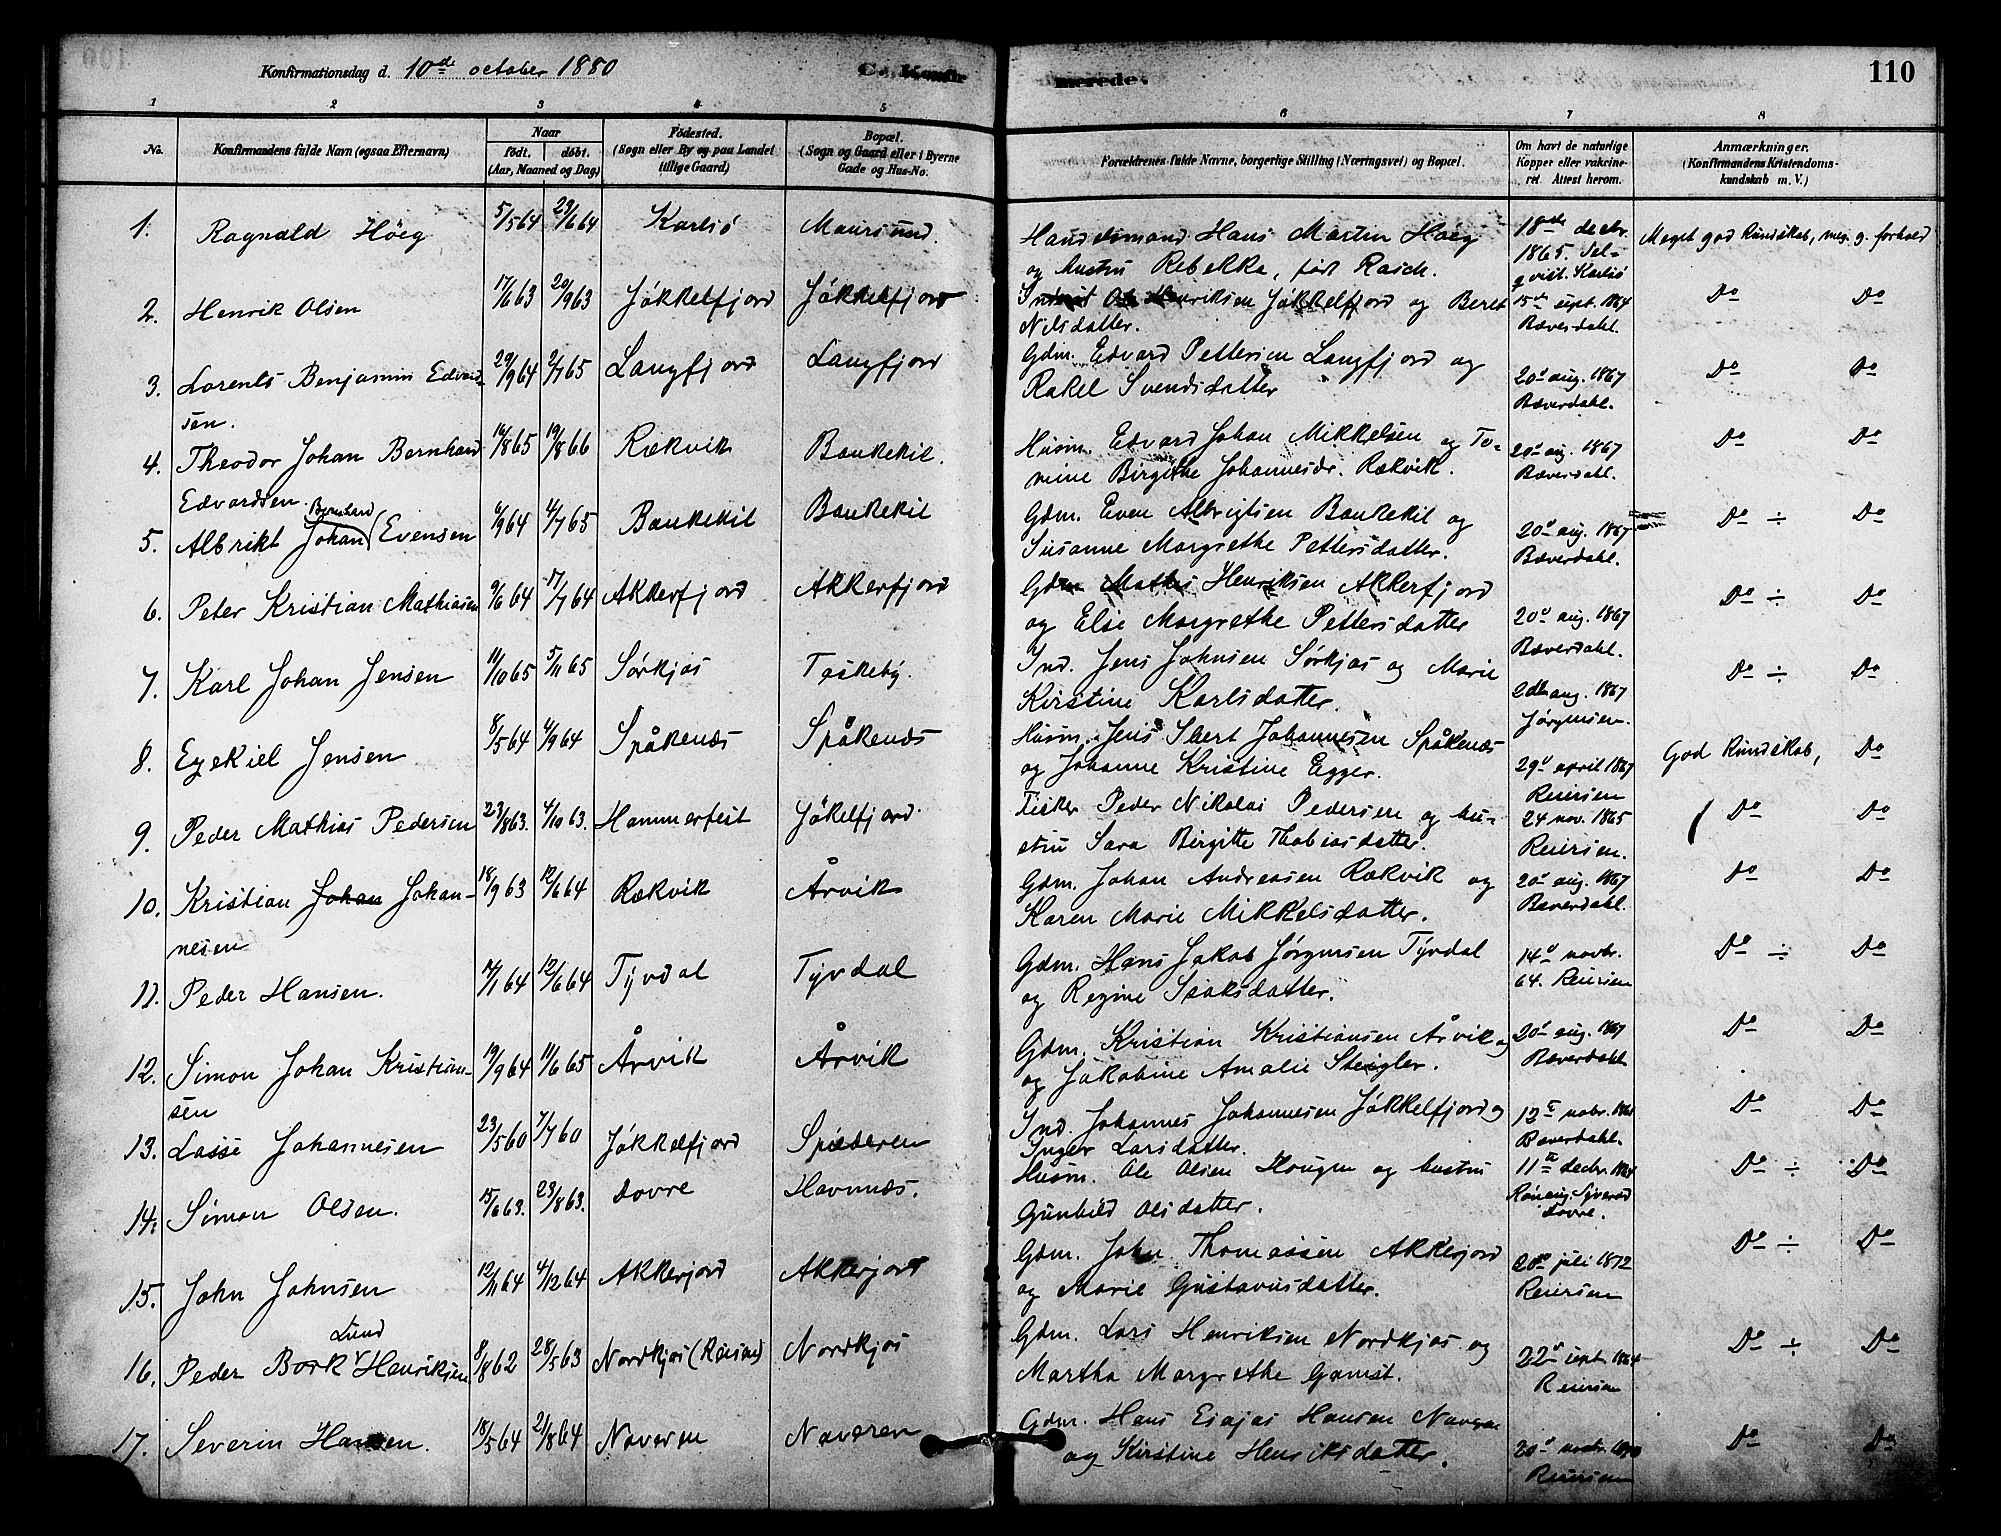 Konfirmationsdag d. 10de october 1880
110
1 2 3 4 5 6 7 8
No.
Konfirmandens fulde Navn (ogsaa Efternavn)
Naar
født. døbt.
(Aar, Maaned og Dag)
Fødested.
(Sogn eller By og paa Landet
tillige Gaard)
Bopæl.
(Sogn og Gaard eller i Byerne
Gade og Hus-No.
Forældrenes fulde Navne, borgerlige Stilling (Næringsvei) og Bopæl.
Om havt de naturlige
Kopper eller vakcine-
ret. Attest herom.
Anmærkninger.
(Konfirmandens Kristendoms-
kundskab m. V.)
1. Ragnald Höeg 5/5 64 29/6 64 Karlsö Maursund. Handelsmand Hans Martin Höeg
og hustru Rebekka, född Rasch.
18de decbr.
1865. Sel-
qvist. Karlsö
Meget god Kundskab, meg. g. forhold
2. Henrik Olsen 17/6 63 20/9 63 Jökkelfjord Jökkelfjord Henriksen Jökkelfjord og Beret
Nilsdatter.
15de sept. 1864
Bæverdahl.
Do Do
3. Lorents Benjamin Edvard-
sen.
29/9 64 2/7 65 Langfjord Langfjord Gdm. Edvard Pettersen Langfjord og
Rakel Svendsdatter
20d aug. 1867
Bæverdahl.
Do Do
4. Theodor Johan Bernhard
Edvardsen.
16/8 65 19/8 66 Rækvik Baukekil. Husm. Edvard Johan Mikkelsen og To-
mine Birgithe Johannesdr. Rækvik.
20d aug. 1867
Bæverdahl.
Do Do
Bernhard
5. Albrikt Johan Evensen 6/9 64 4/7 65 Baukekil Baukekil Gdm. Even Albrigtsen Baukekil og
Susanne Margrethe Pettersdatter.
20d aug. 1867
Bæverdahl.
Do ÷ Do
6. Peter Kristian Mathiasen 9/6 64 17/7 64 Akkerfjord Akkerfjord Gdm Mathis Henriksen Akkerfjord
og Else Margrethe Pettersdatter
20d aug. 1867
Bæverdahl.
Do ÷ Do
7. Karl Johan Jensen 11/10 65 5/11 65 Sörkjos Taskeby. Ind. Jens Johnsen Sörkjos og Marie
Kirstine Karlsdatter.
aug. 1867
Jörgensen.
Do ÷ Do
8. Ezekiel Jensen 8/5 64 4/9 64 Spåkenæs Spåkenæs Husm. Jens Ibert Johannesen Spåkenæs
og Johanne Kristine Egger.
29d april 1867
Reiersen
God Kundskab, Do
9. Peder Mathias Pedersen 23/8 63. 4/10 63. Hammerfest Jökelfjord. Fisker Peder Nikolai Pedersen og hu-
stru Sara Birgitte Thobiasdatter.
24 nov. 1865
Reiersen.
Do Do
10. Kristian Johan Johan-
nesen
18/9 63 12/6 64 Rækvik Årvik Gdm. Johan Andreasen Rækvik og
Karen Marie Mikkelsdatter.
20d aug. 1867
Bæverdahl.
Do Do
11. Peder Hansen. 14/1 64 12/6 64 Tyvdal Tyvdal Gdm. Hans Jakob Jörgensen Tyvdal
og Regine Isaksdatter.
14d novbr.
64. Reiersen
Do ÷ Do
12. Simon Johan Kristian-
sen
19/9 64 11/6 65 Årvik Årvik Gdm. Kristian Kristiansen Årvik og
og Jakobine Amalie Steigler.
20d aug. 1867
Bæverdahl
Do Do
13. Lasse Johannesen 23/5 60 7/7 60 Jökkelfjord Spisteren Ind. Johannes Johannesen Jökkelfjord og
Inger Larsdatter.
Bæverdahl.
Do Do
14. Simon Olsen. 15/6 63. 23/8 63. Dovre Havnnæs. Husm. Ole Olsen Haugen og hustru
Gunhild Olsdatter.
Dovre.
Do ÷ Do
15. John Johnsen 12/11 64 4/12 64 Akkerjord Akkerjord Gdm. John Thomassen Akkerjord
og Marie Gustavusdatter.
20de juli 1872
Reiersen
Do ÷ Do
Lund
16. Peder Bork Henriksen 8/8 62 28/5 63 Nordkjos (Reisen) Nordkjos Gdm. Lars Henriksen Nordkjos og
Martha Margrethe Gamst.
22d sept. 1864
Reiersen
Do ÷ Do
17. Severin Hansen. 18/5 64 21/8 64 Naveren Naveren Gdm. Hans Esajas Hansen Naveren
og Kirstine Henriksdatter.
Reiersen
Do Do